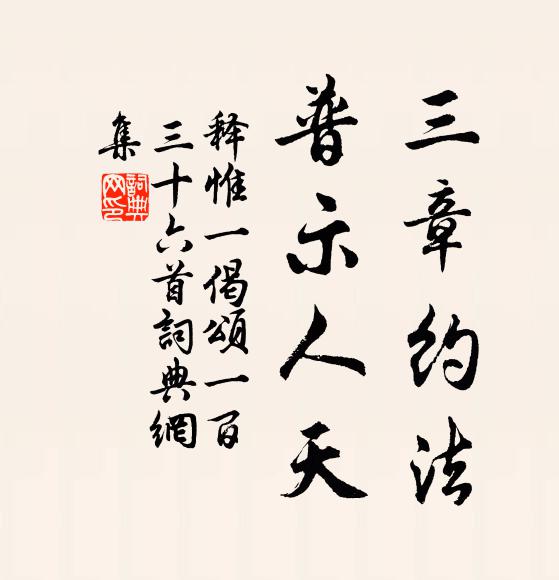 三章约法
普示人天
释惟一偈颂一百
三十六首詞典網
集
詞典
网印